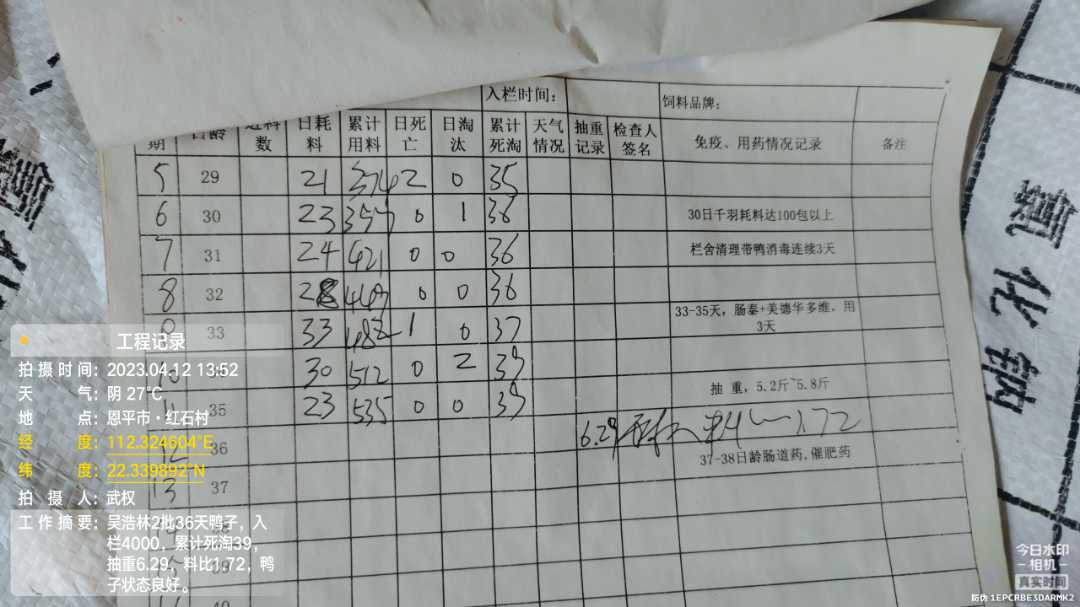 入栏时间：
饲料品牌：
期 日龄 进料数 日耗料 累计用料 日死亡 日淘汰 累计死淘 天气情况 抽重记录 检查人签名 免疫、用药情况记录 备注
5 29 21 374 2 0 35
6 30 23 397 0 1 36 30日千羽耗料达100包以上
7 31 24 421 0 0 36 栏舍清理带鸭消毒连续3天
8 32 28 449 0 0 36
33-35天，肠泰+美德华多维，用
3天
9 33 33 482 1 0 37
10 30 512 0 2 39
抽 重，5.2斤~5.8斤
11 35 23 535 0 0 39
12 36 6.29 料 1.72
37-38日龄肠道药,催肥药
13 37
40
工程记录
拍摄时间：2023.04.12 13:52
天 气：阴 27℃
地 点：恩平市·红石村
经 度：112.324604°E
纬 度：22.339892°N
拍 摄 人：武权
工作摘要：吴浩林2批36天鸭子，入
栏4000，累计死淘39，
抽重6.29，料比1.72，鸭
子状态良好。
氯化钠
今日水印
-相机-
真实时间
防伪 1EPCRBE3DARMK2